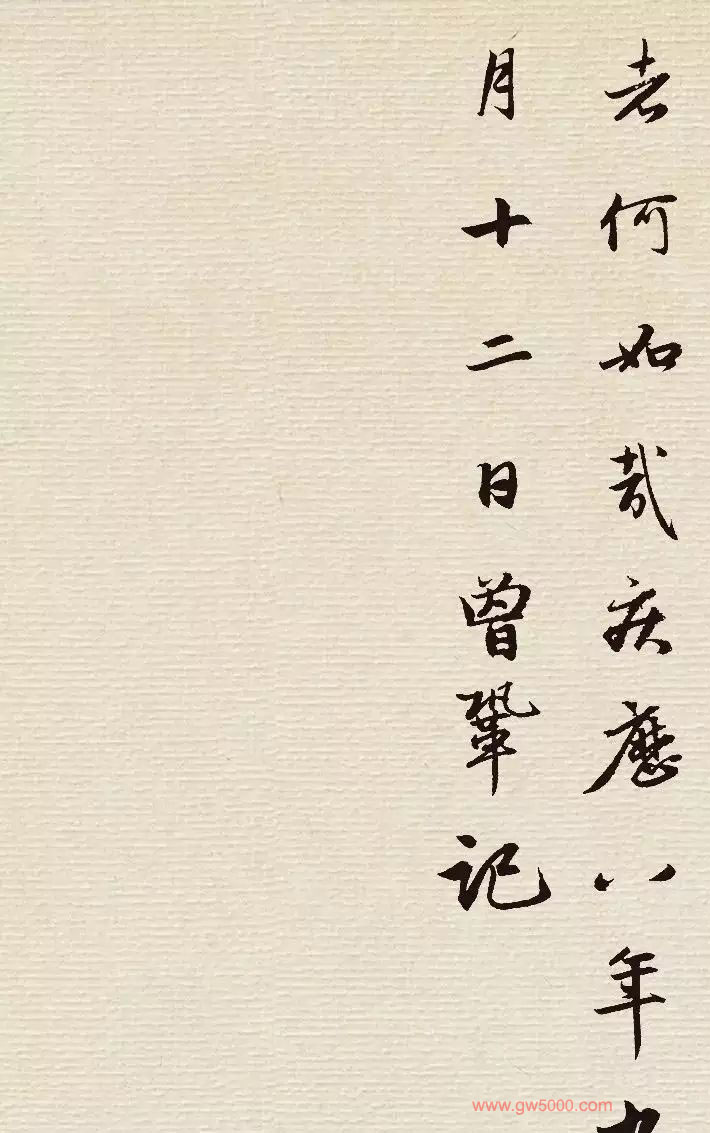 者何如哉庆歷八年
月十二日曾鞏记
www.gw5000.com